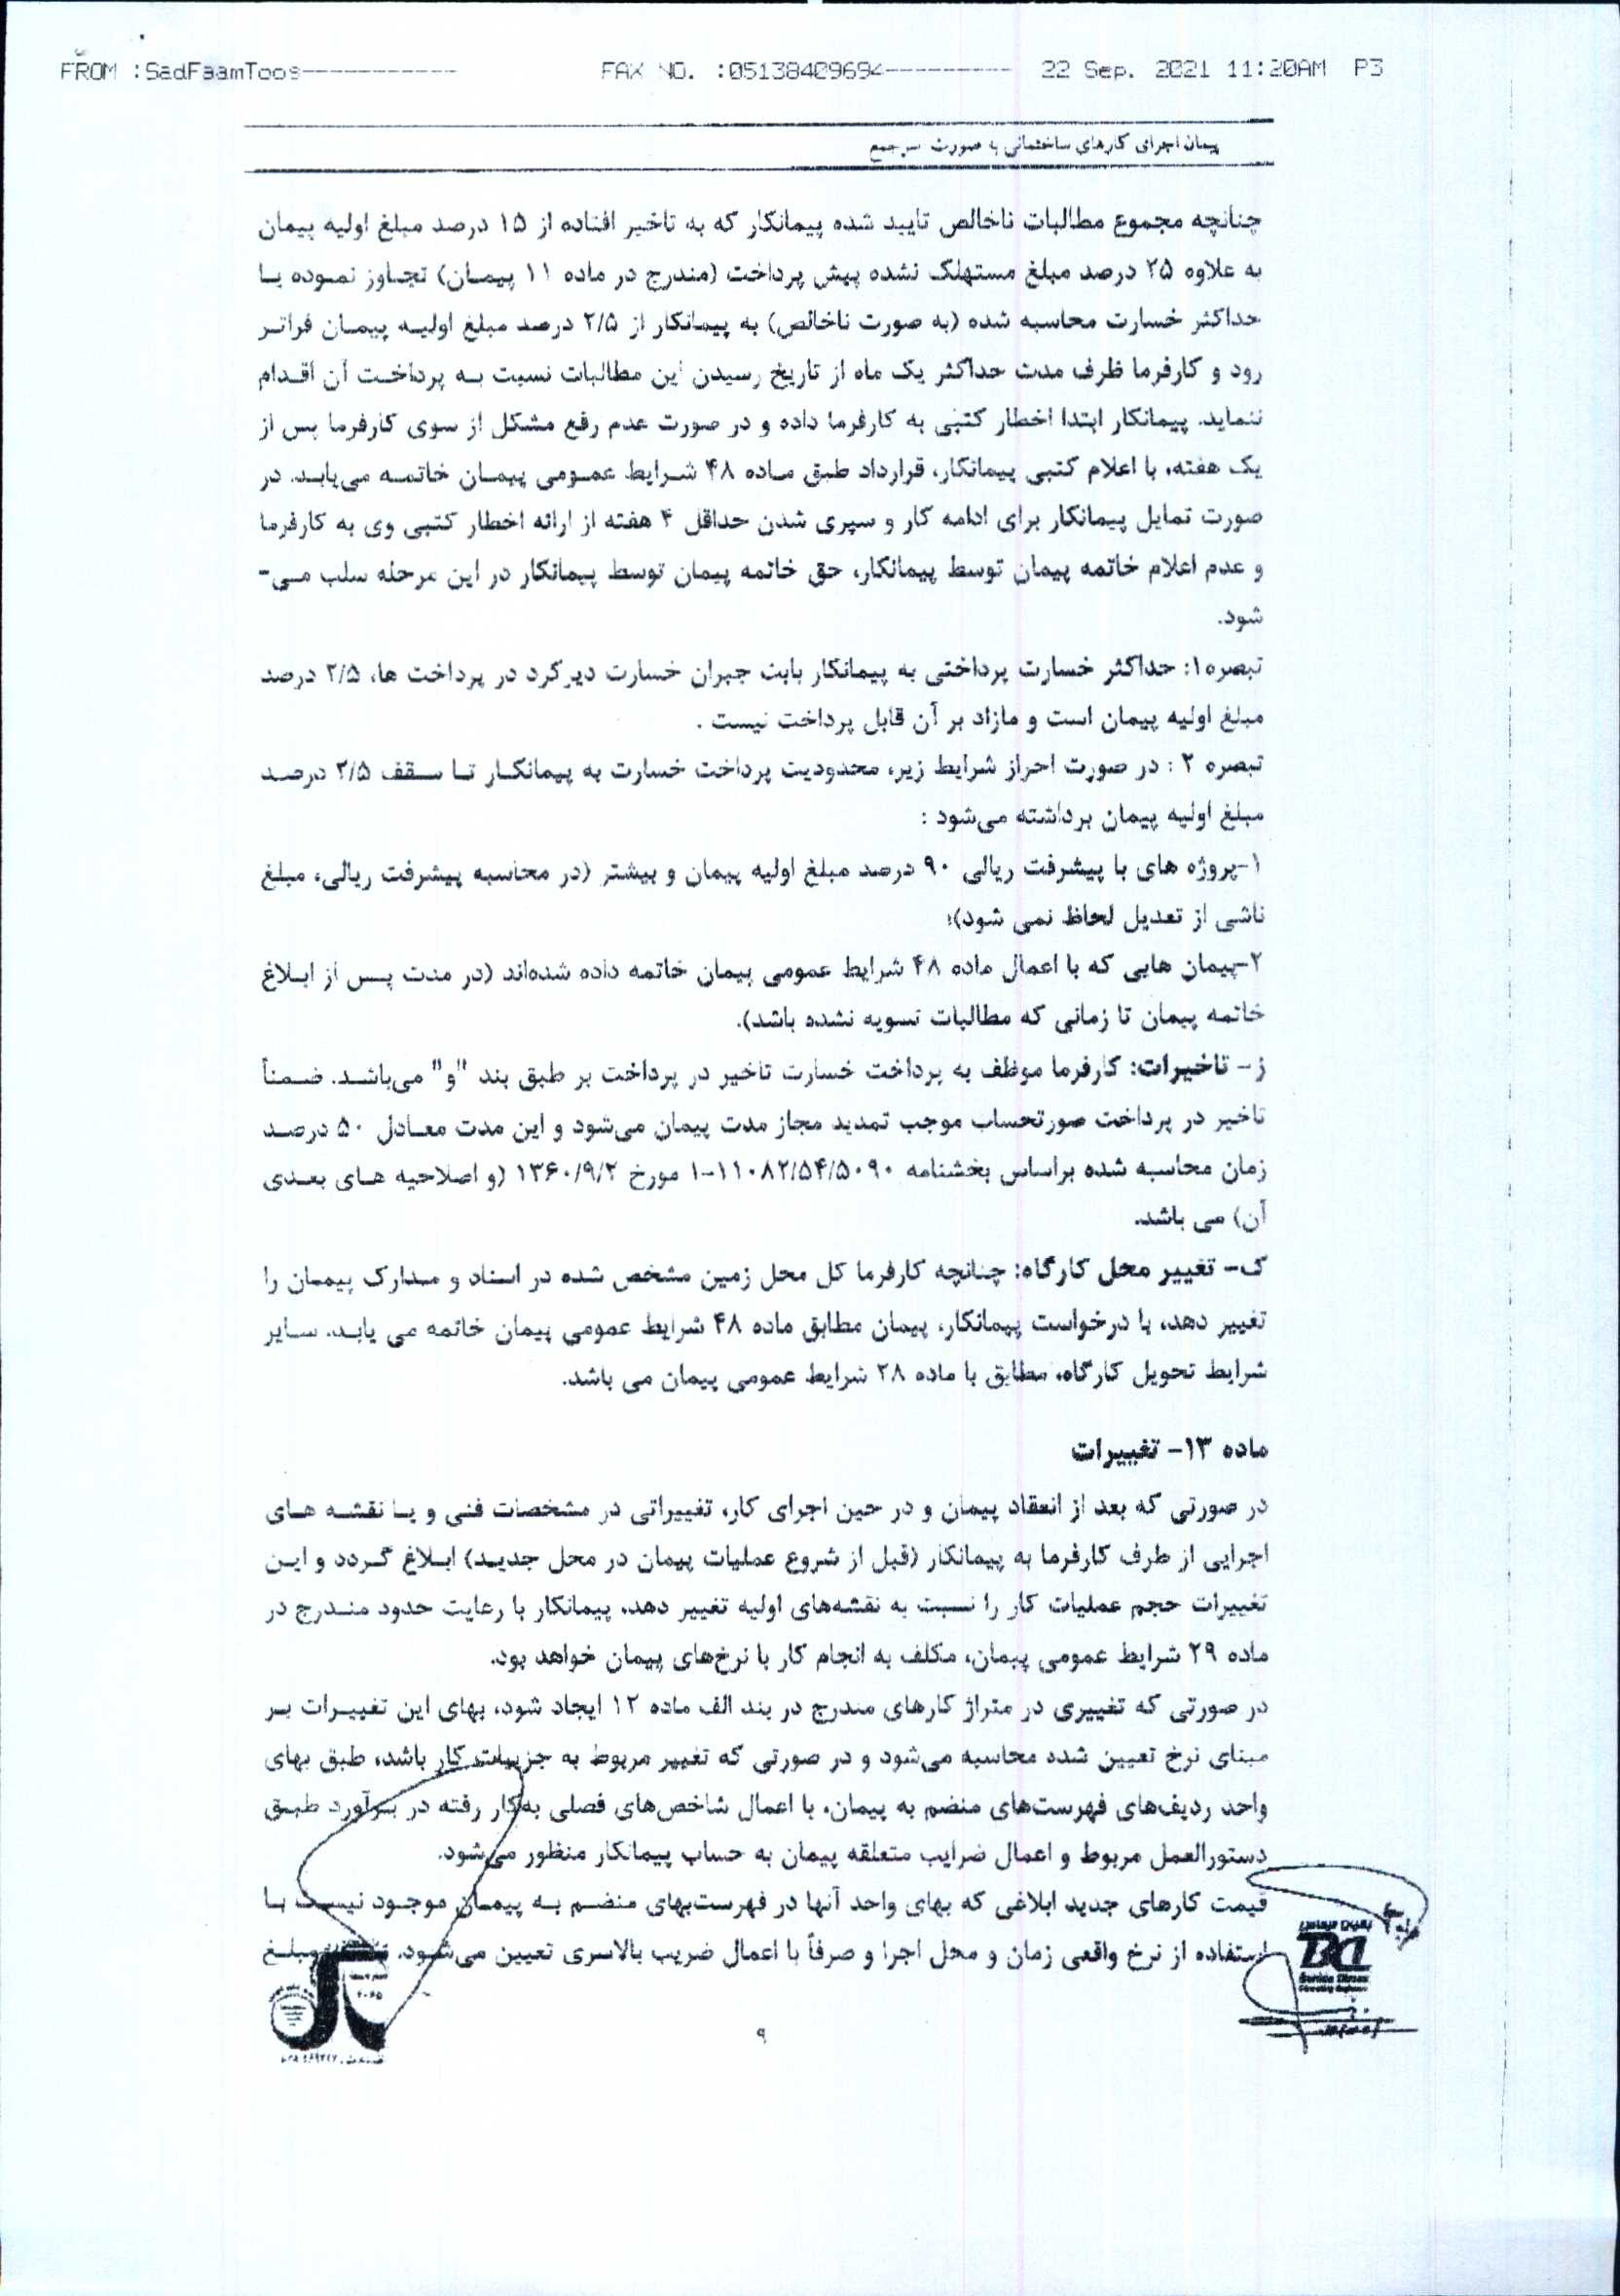 FROM :SadFaamToos------------ FAX NO. :05138409694---------- 22 Sep. 2021 11:20AM P3
پیمان اجرای کارهای ساختمانی به صورت سرجمع
چنانچه مجموع مطالبات ناخالص تایید شده پیمانکار که به تاخیر افتاده از ۱۵ درصد مبلغ اولیه پیمان
به علاوه ۲۵ درصد مبلغ مستهلک نشده پیش پرداخت (مندرج در ماده ۱۱ پیمان) تجاوز نموده یا
حداکثر خسارت محاسبه شده (به صورت ناخالص) به پیمانکار از ۲/۵ درصد مبلغ اولیه پیمان فراتر
رود و کارفرما ظرف مدت حداکثر یک ماه از تاریخ رسیدن این مطالبات نسبت به پرداخت آن اقدام
ننماید. پیمانکار ابتدا اخطار کتبی به کارفرما داده و در صورت عدم رفع مشکل از سوی کارفرما پس از
یک هفته، با اعلام کتبی پیمانکار، قرارداد طبق ماده ۴۸ شرایط عمومی پیمان خاتمه می‌یابد. در
صورت تمایل پیمانکار برای ادامه کار و سپری شدن حداقل ۴ هفته از ارائه اخطار کتبی وی به کارفرما
و عدم اعلام خاتمه پیمان توسط پیمانکار، حق خاتمه پیمان توسط پیمانکار در این مرحله سلب می-
شود.
تبصره۱: حداکثر خسارت پرداختی به پیمانکار بابت جبران خسارت دیرکرد در پرداخت ها، ۲/۵ درصد
مبلغ اولیه پیمان است و مازاد بر آن قابل پرداخت نیست .
تبصره ۲ : در صورت احراز شرایط زیر، محدودیت پرداخت خسارت به پیمانکار تا سقف ۲/۵ درصد
مبلغ اولیه پیمان برداشته می‌شود :
۱-پروژه های با پیشرفت ریالی ۹۰ درصد مبلغ اولیه پیمان و بیشتر (در محاسبه پیشرفت ریالی، مبلغ
ناشی از تعدیل لحاظ نمی شود)؛
۲-پیمان هایی که با اعمال ماده ۴۸ شرایط عمومی پیمان خاتمه داده شده‌اند (در مدت پس از ابلاغ
خاتمه پیمان تا زمانی که مطالبات تسویه نشده باشد).
ز- تاخیرات: کارفرما موظف به پرداخت خسارت تاخیر در پرداخت بر طبق بند "و" می‌باشد. ضمناً
تاخیر در پرداخت صورتحساب موجب تمدید مجاز مدت پیمان می‌شود و این مدت معادل ۵۰ درصد
زمان محاسبه شده براساس بخشنامه ۱-۱۱۰۸۲/۵۴/۵۰۹۰ مورخ ۱۳۶۰/۹/۲ (و اصلاحیه های بعدی
آن) می باشد.
ک- تغییر محل کارگاه: چنانچه کارفرما کل محل زمین مشخص شده در اسناد و مدارک پیمان را
تغییر دهد، با درخواست پیمانکار، پیمان مطابق ماده ۴۸ شرایط عمومی پیمان خاتمه می یابد. سایر
شرایط تحویل کارگاه، مطابق با ماده ۲۸ شرایط عمومی پیمان می باشد.
ماده ۱۳- تغییرات
در صورتی که بعد از انعقاد پیمان و در حین اجرای کار، تغییراتی در مشخصات فنی و یا نقشه های
اجرایی از طرف کارفرما به پیمانکار (قبل از شروع عملیات پیمان در محل جدید) ابلاغ گردد و این
تغییرات حجم عملیات کار را نسبت به نقشه‌های اولیه تغییر دهد، پیمانکار با رعایت حدود مندرج در
ماده ۲۹ شرایط عمومی پیمان، مکلف به انجام کار با نرخ‌های پیمان خواهد بود.
در صورتی که تغییری در متراژ کارهای مندرج در بند الف ماده ۱۲ ایجاد شود، بهای این تغییرات بر
مبنای نرخ تعیین شده محاسبه می‌شود و در صورتی که تغییر مربوط به جزییات کار باشد، طبق بهای
واحد ردیف‌های فهرست‌های منضم به پیمان، با اعمال شاخص‌های فصلی به‌کار رفته در برآورد طبق
دستورالعمل مربوط و اعمال ضرایب متعلقه پیمان به حساب پیمانکار منظور می‌شود.
قیمت کارهای جدید ابلاغی که بهای واحد آنها در فهرست‌بهای منضم به پیمان موجود نیست با
استفاده از نرخ واقعی زمان و محل اجرا و صرفاً با اعمال ضریب بالاسری تعیین می‌شود. مبلغ
۹